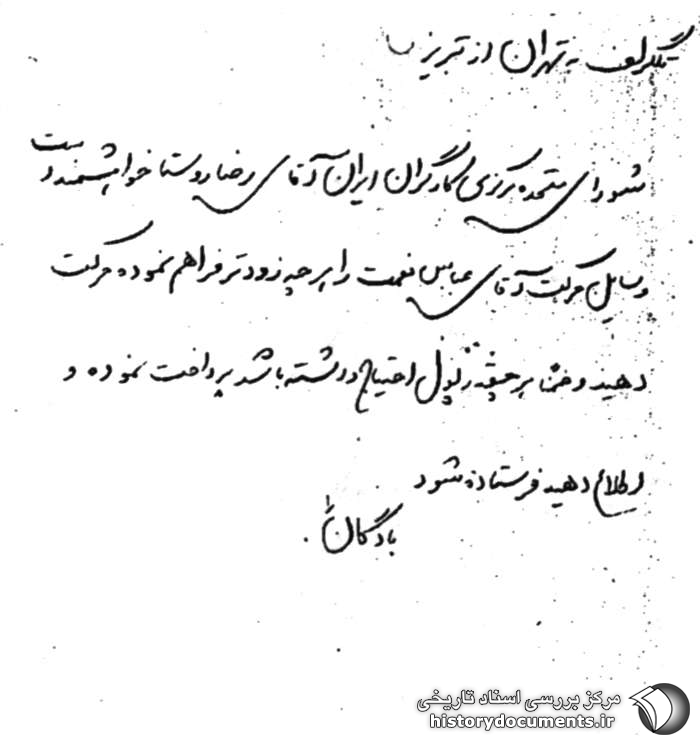 تلگراف به تهران از تبریز
شورای متحده مرکزی کارگران ایران آقای رضا روستا خواهشمند است
وسایل حرکت آقای عباس نعمت را هر چه زودتر فراهم نموده حرکت
دهید و ضمنا هر چقدر پول احتیاج داشته باشد پرداخت نموده و
اطلاع دهید فرستاده شود
بادگان
مرکز بررسی اسناد تاریخی
historydocuments.ir